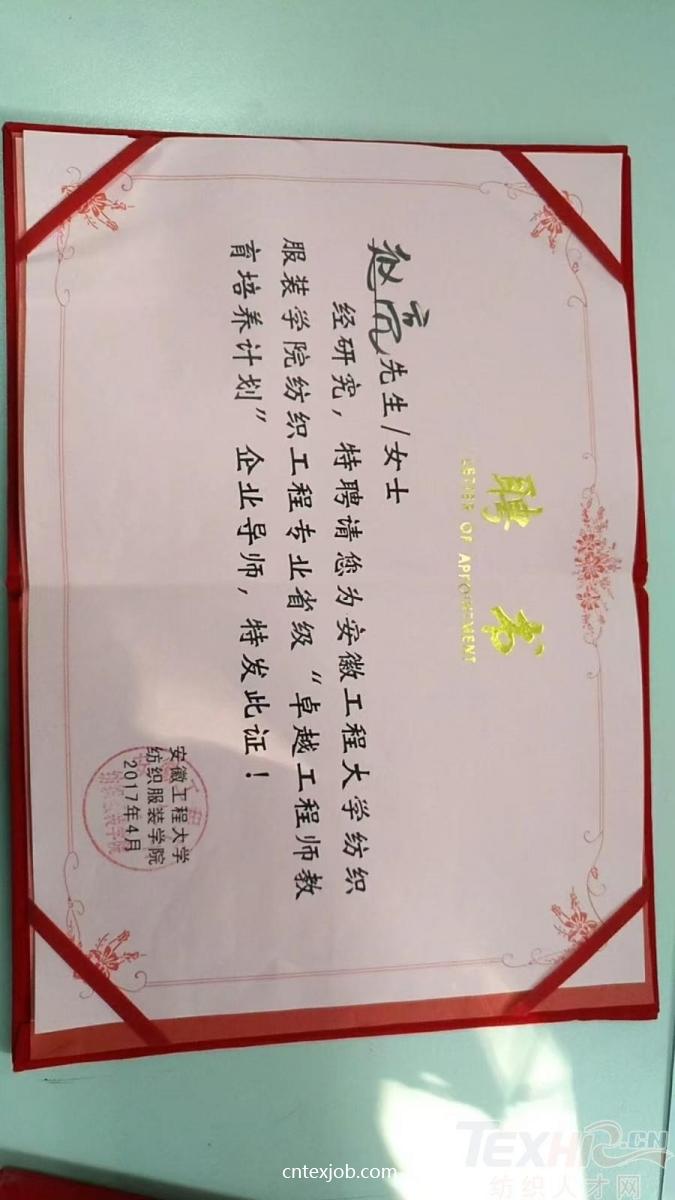 聘书
LETTER OF APPOINTMENT
先生/女士
经研究，特聘请您为安徽工程大学纺织
服装学院纺织工程专业省级“卓越工程师教
育培养计划”企业导师，特发此证！
安徽工程大学
纺织服装学院
2017年4月
cntexjob.com
TEXHR.CN
纺织人才网